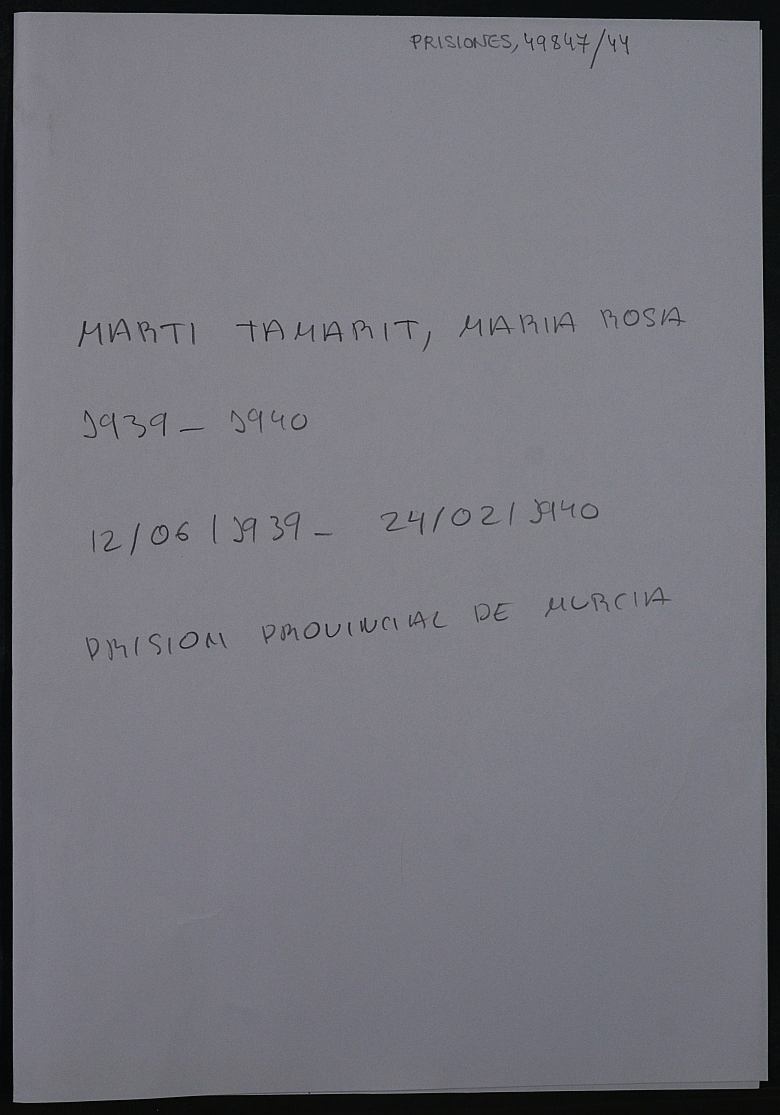 PRISIONES, 49847/44
MARTI TAMARIT, MARIA ROSA
1939 - 1940
12/06/1939 - 24/02/1940
PRISION PROVINCIAL DE MURCIA